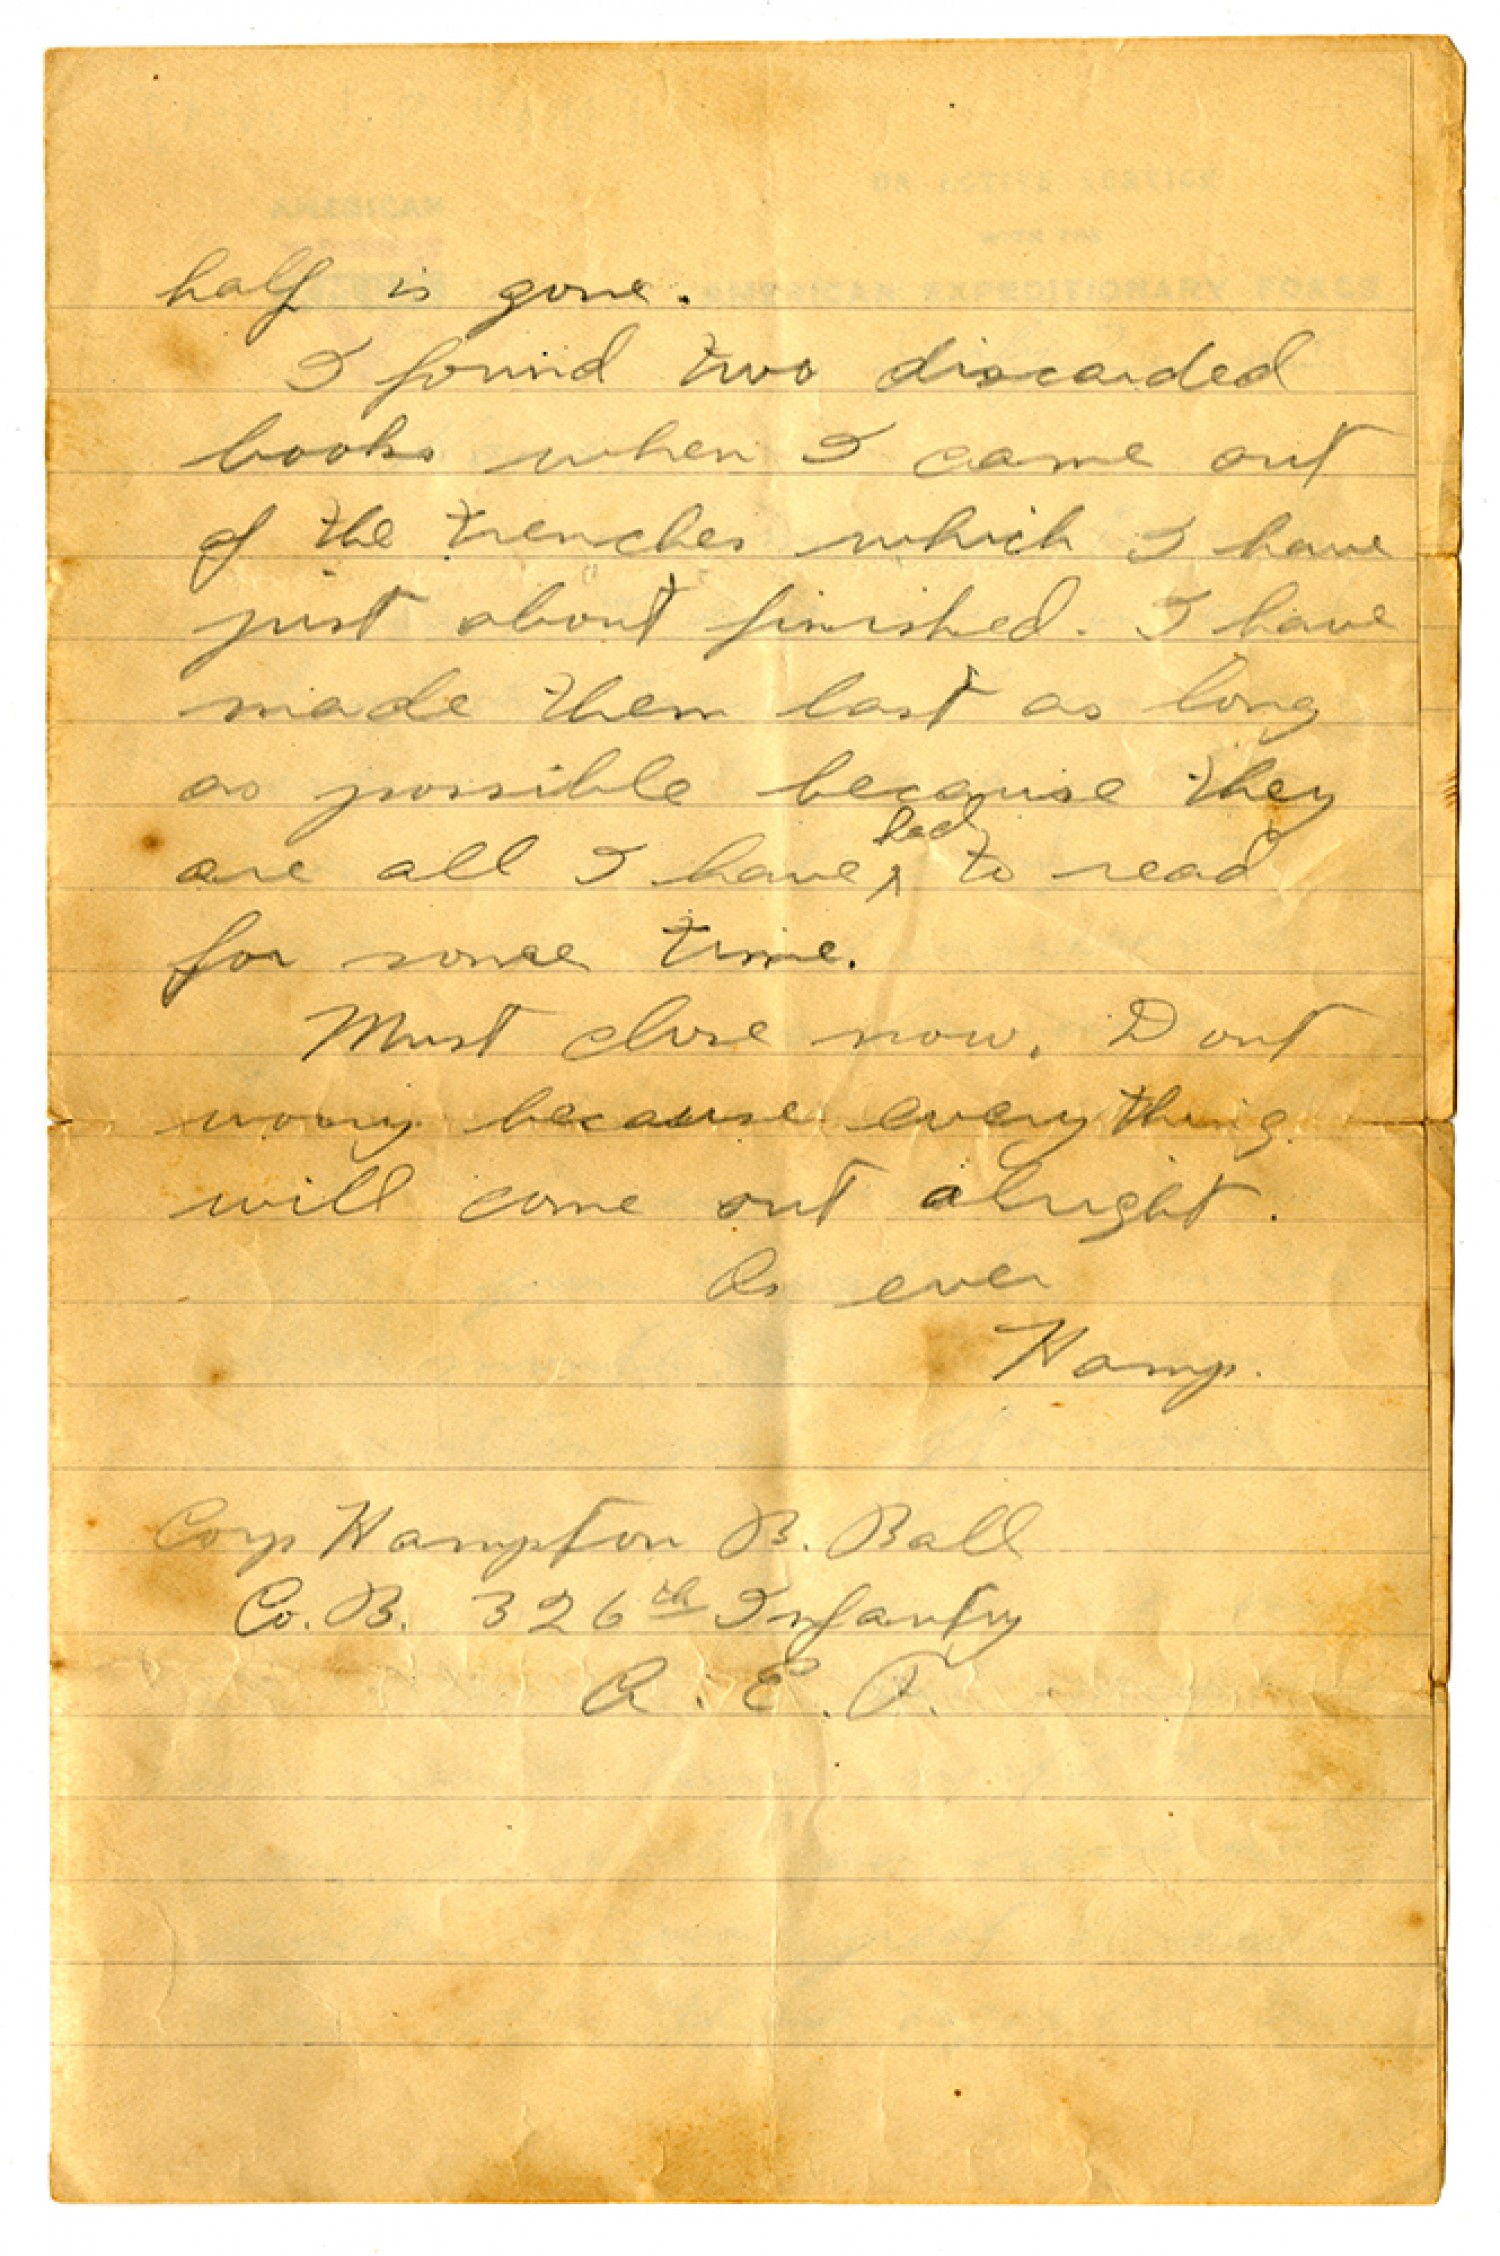 half is gone.
I found two discarded
books when I came out
of the trenches which I have
just about finished. I have
made them last as long
as possible because they
are all I have had to read
for some time.
Must close now. Dont
worry because everything
will come out alright.
As ever
Hamp.
Corp Hampton B. Ball
Co. B. 326th Infantry
A. E. F.